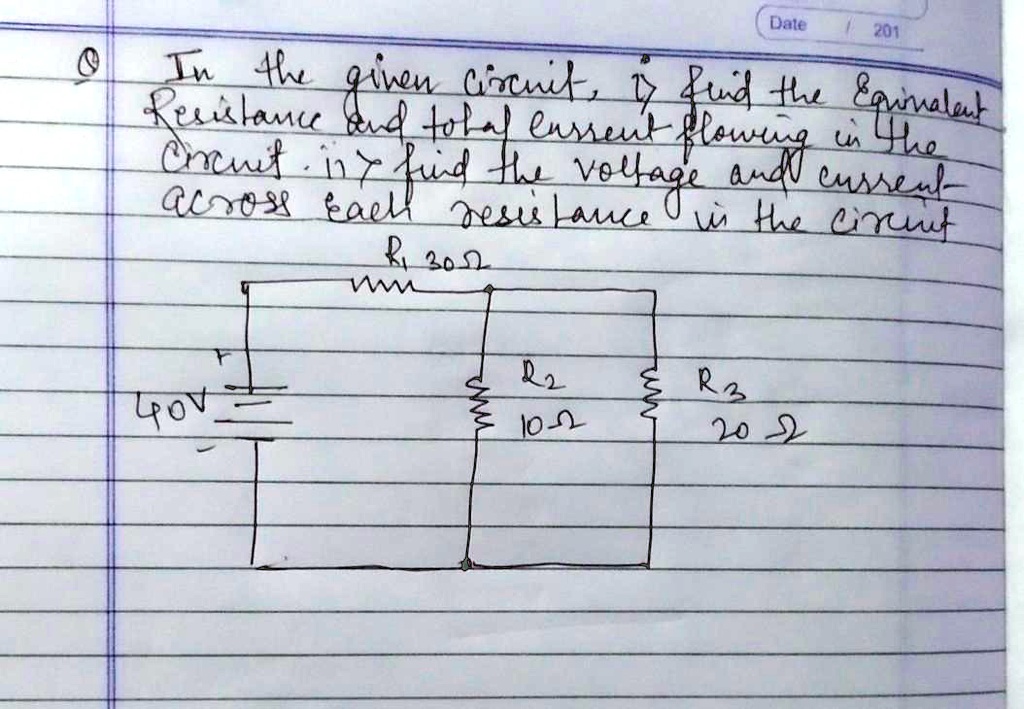 Date / 201
Q In the given circuit, i> find the Equivalent
Resistance and total current flowing in the
Circuit. ii> find the voltage and current
across each resistance in the circuit
R1 30Ω
+
40V
-
R2
10Ω
R3
20 Ω